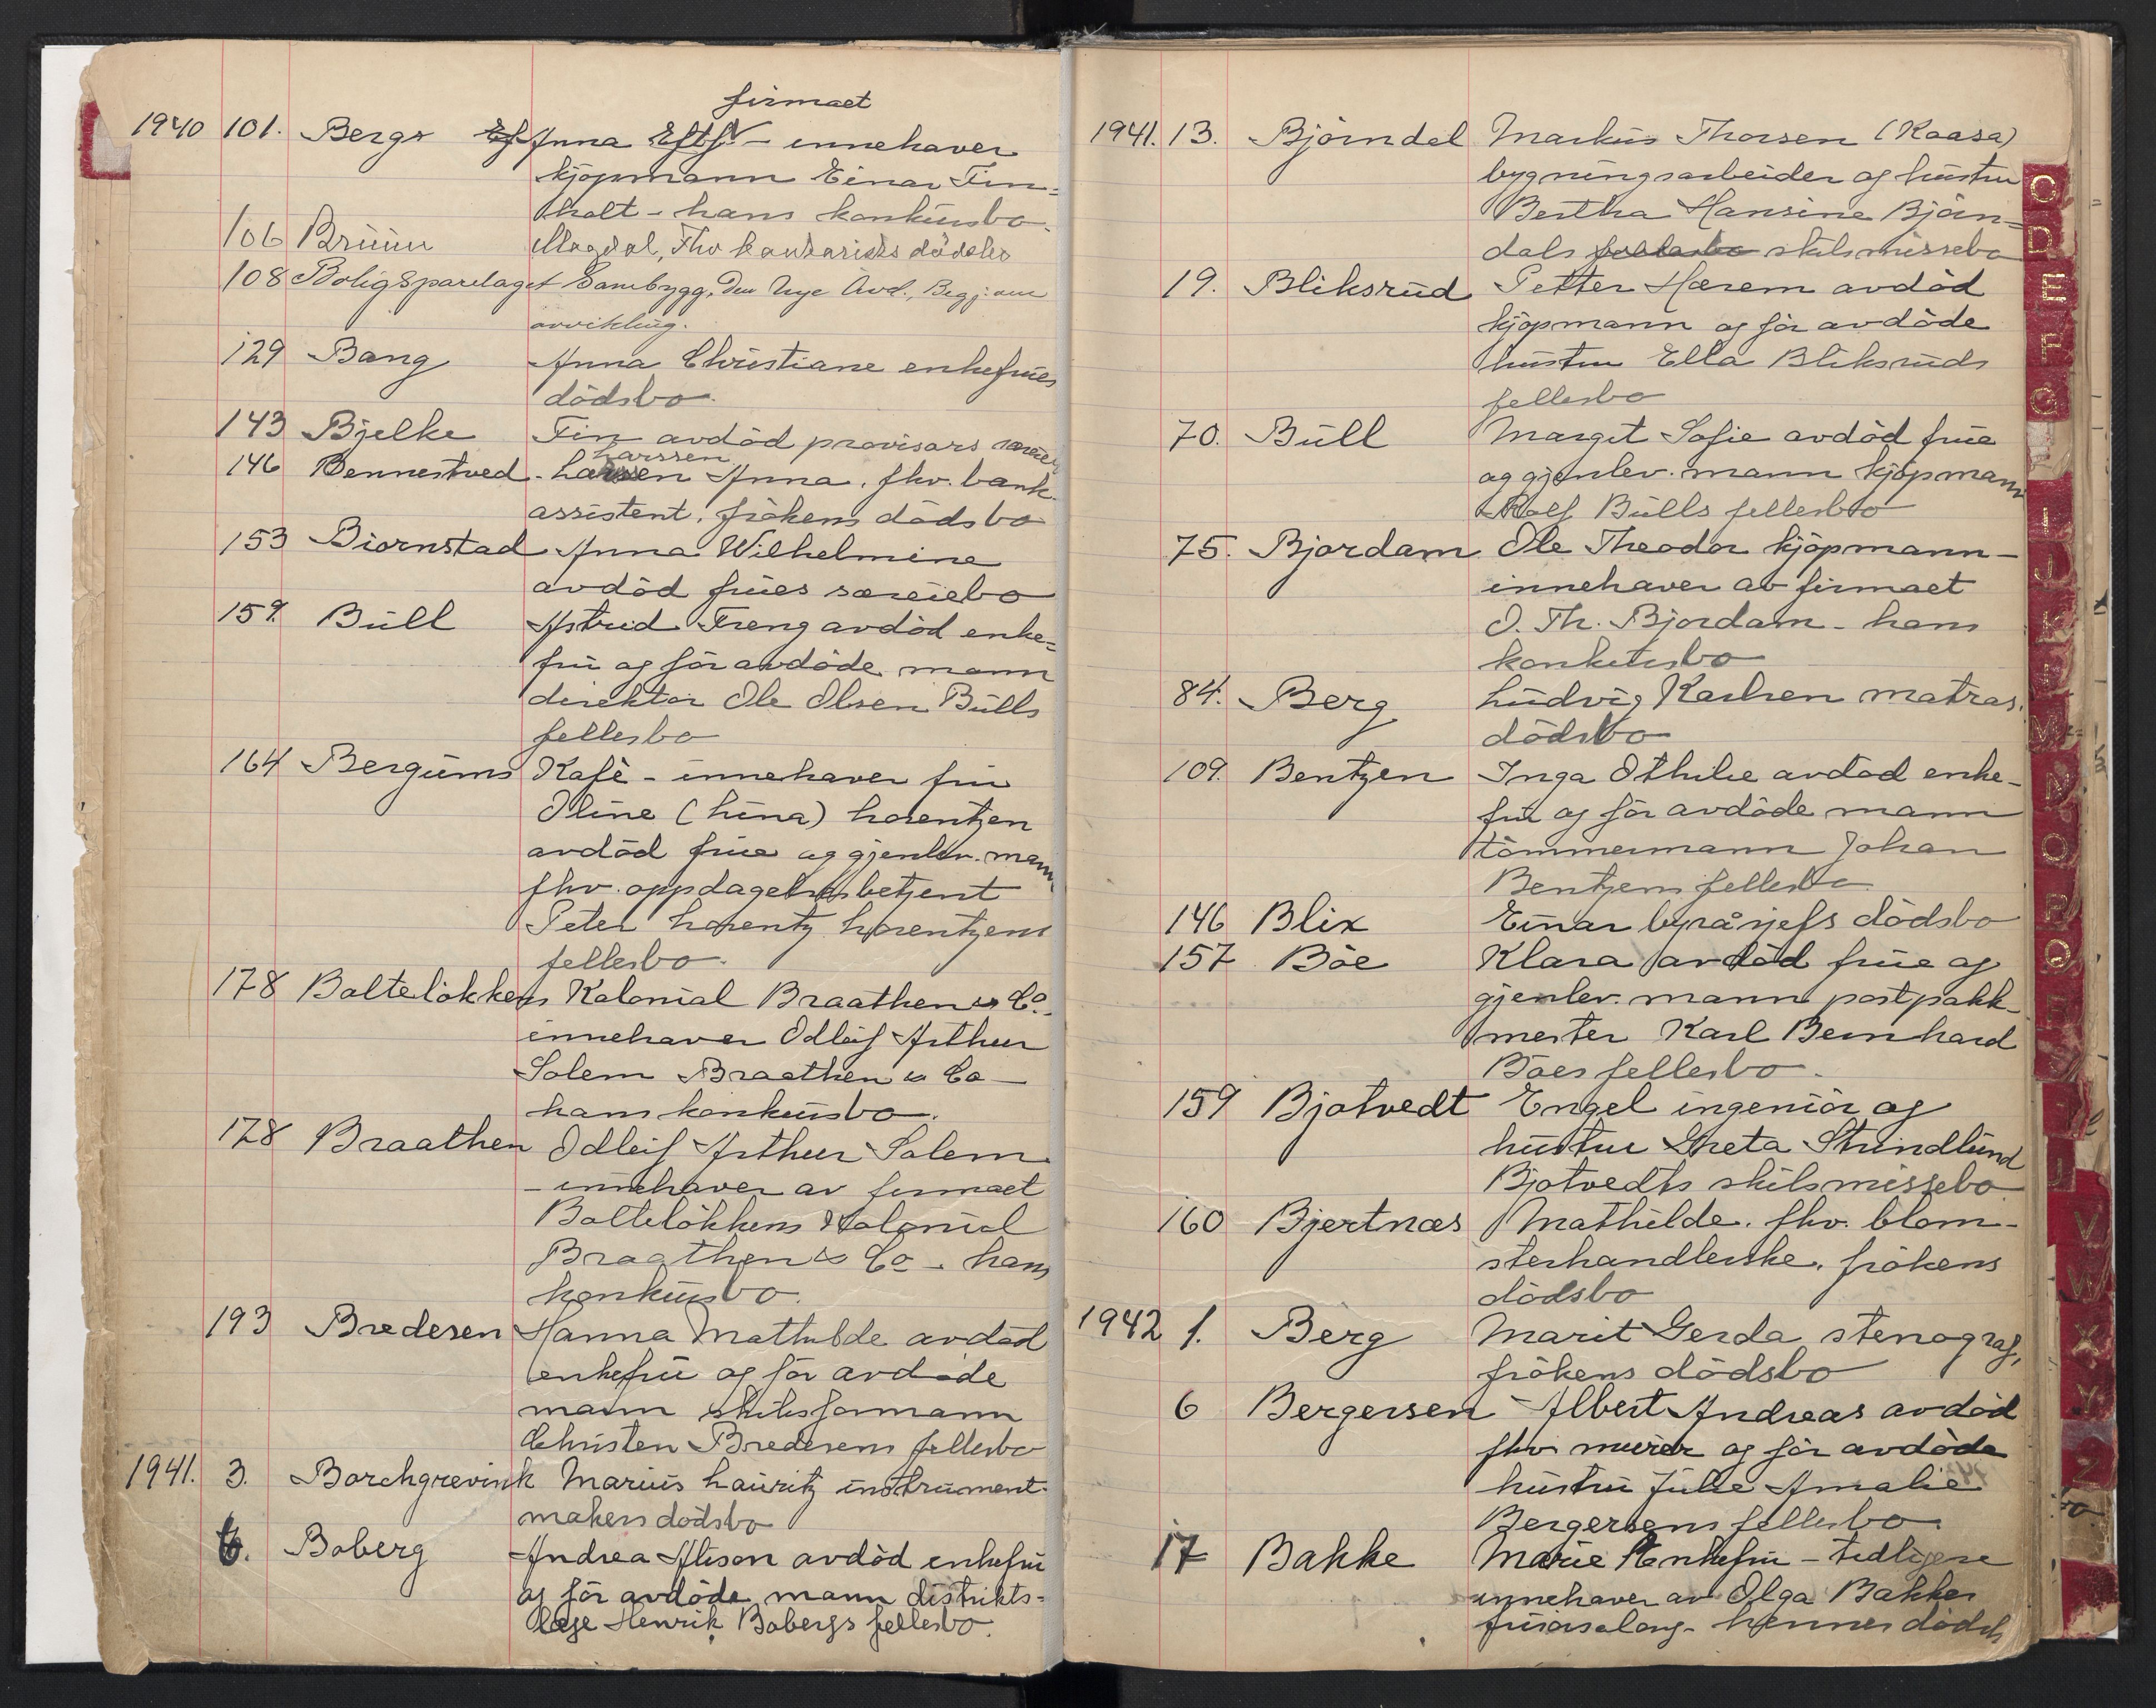 firmaet
1940 101. Bergs Anna Eftf. - innehaver
kjöpmann Einar Fin=
holt - hans konkursbo.
106 Bruun Magdal, fhv kontorists dödsbo
108 Boligsparelaget Sambygg, Den Nye Avd., Begj. om
avvikling.
129 Bang Anna Christiane enkefrues
dödsbo.
143 Bjelke Finn avdöd provisors særeie
Larssen
146 Bennestved - Anna, fhv. bank-
assistent, frökens dödsbo
153 Biornstad Anna Wilhelmine
avdöd frues særeiebo
159. Bull Astrid Treng avdöd enke=
fru og för avdöde mann
direktör Ole Olsen Bulls
fellesbo
164 Bergums Kafè - innehaver fru
Oline (Lina) Lorentzen
avdöd frue og gjenlev. mann
fhv. oppdagelsesbetjent
Peter Lorentz Lorentzens
fellesbo.
178 Boltelökkens Kolonial Braathen & Co.
innehaver Odleif Arthur
Solem Braathen & Co -
hans konkursbo.
178 Braathen Odleif Arthur Solem
- innehaver av firmaet
Boltelökkens Kolonial
Braathen & Co - hans
konkursbo.
193 Bredesen Hanna Mathilde avdöd
enkefru og för avdöde
mann skiftsformann
Christen Bredesens fellesbo
1941. 3. Borchgrevink Marius Lauritz instrument-
makers dödsbo
6. Boberg Andrea Alison avdöd enkefru
og för avdöde mann distrikts=
læge Henrik Bobergs fellesbo.
1941. 13. Björndal Markus Thorsen (Kaasa)
bygningsarbeider og hustru
Bertha Hansine Björn=
dals fellesbo skilsmissebo
19. Bliksrud Petter Hærem avdöd
kjöpmann og för avdöde
hustru Ella Bliksruds
fellesbo
70. Bull Margit Sofie avdöd frue
og gjenlev. mann kjöpmann
Rolf Bulls fellesbo
75. Bjordam Ole Theodor kjöpmann -
innehaver av firmaet
O. Th. Bjordam - hans
konkursbo
84. Berg Ludvig Karlsen matros,
dödsbo
109. Bentzen Inga Othilie avdöd enke-
fru og för avdöde mann
tömmermann Johan
Bentzens fellesbo
146 Blix Einar byråsjefs dödsbo
157 Böe Klara avdöd frue og
gjenlev. mann postpakk-
mester Karl Bernhard
Böes fellesbo.
159 Bjotvedt Engel ingeniör og
hustru Greta Strindlund
Bjotvedts skilsmissebo
160 Bjertnæs Mathilde, fhv. blom-
sterhandlerske, frökens
dödsbo
1942 1. Berg Marit Gerda stenograf,
frökens dödsbo
6 Bergersen Albert Andreas avdöd
fhv murer og för avdöde
hustru Julie Amalie
Bergersens fellesbo.
17 Bakke Marie enkefru - tidligere
innehaver av Olga Bakkes
frisersalong - hennes dödsb
C
D
E
F
G
I
J
K
L
M
N
O
P
Q
R
S
T
U
V
W
X
Y
Z